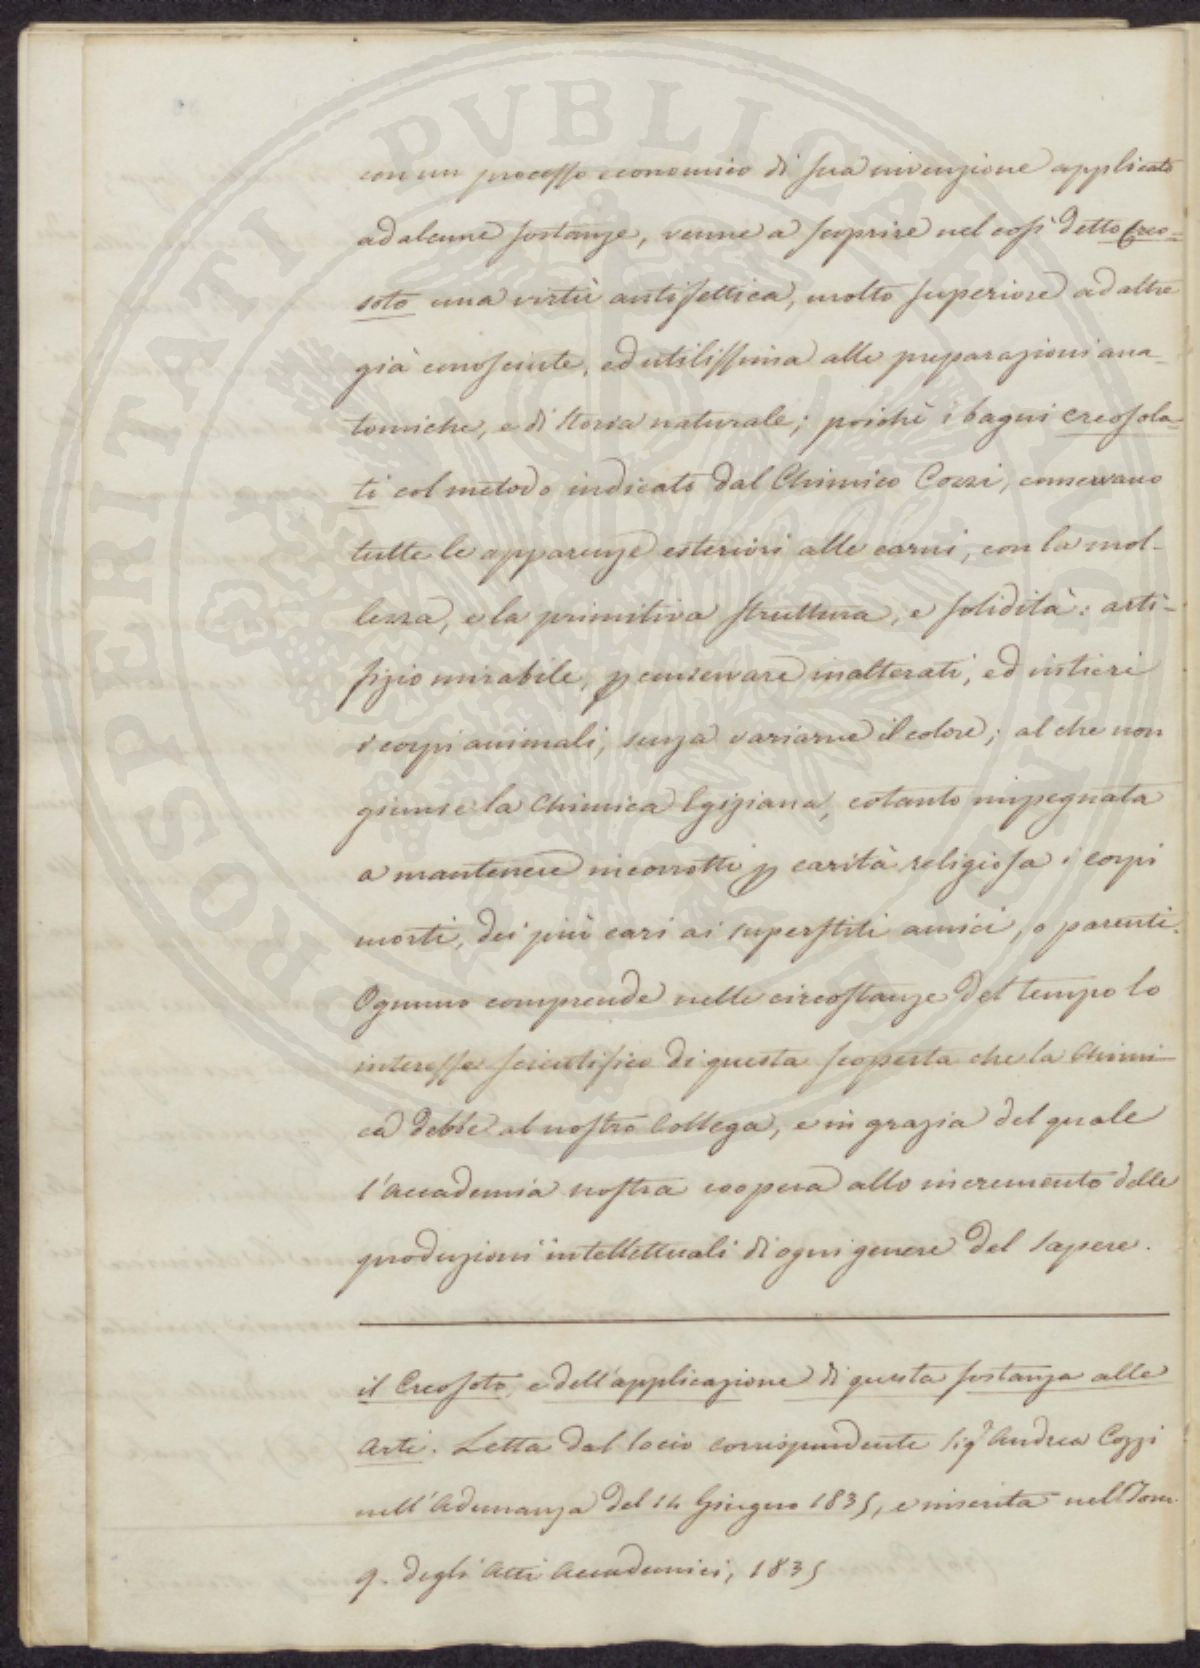 PROSPERITATI PUBLICAE AUGENDAE
con un processo economico di sua invenzione applicato
ad alcune sostanze, venne a scoprire nel così detto Creo=
soto una virtù antisettica, molto superiore ad altre
già conosciute, ed utilissima alle preparazioni ana-
tomiche, e di Storia naturale; poichè i bagni creosola-
ti col metodo indicato dal Chimico Cozzi, conservano
tutte le apparenze esteriori alle carni, con la mol-
lezza, e la primitiva struttura, e solidità: arti-
fizio mirabile, p conservare inalterati, ed intieri
i corpi animali, senza variarne il colore; al che non
giunse la Chimica Egiziana, cotanto impegnata
a mantenere incorrotti p carità religiosa i corpi
morti, dei più cari ai superstiti amici, o parenti.
Ognuno comprende nelle circostanze del tempo lo
interesse scientifico di questa scoperta che la Chimi-
ca debbe al nostro Collega, e in grazia del quale
l'Accademia nostra coopera allo incremento delle
produzioni intellettuali di ogni genere del sapere.
il Creosoto, e dell'applicazione di questa sostanza alle
Arti. Letta dal socio corrispondente Sigr Andrea Cozzi
nell'Adunanza del 14 Giugno 1835, e inserita nel Tom.
9. degli Atti Accademici, 1835